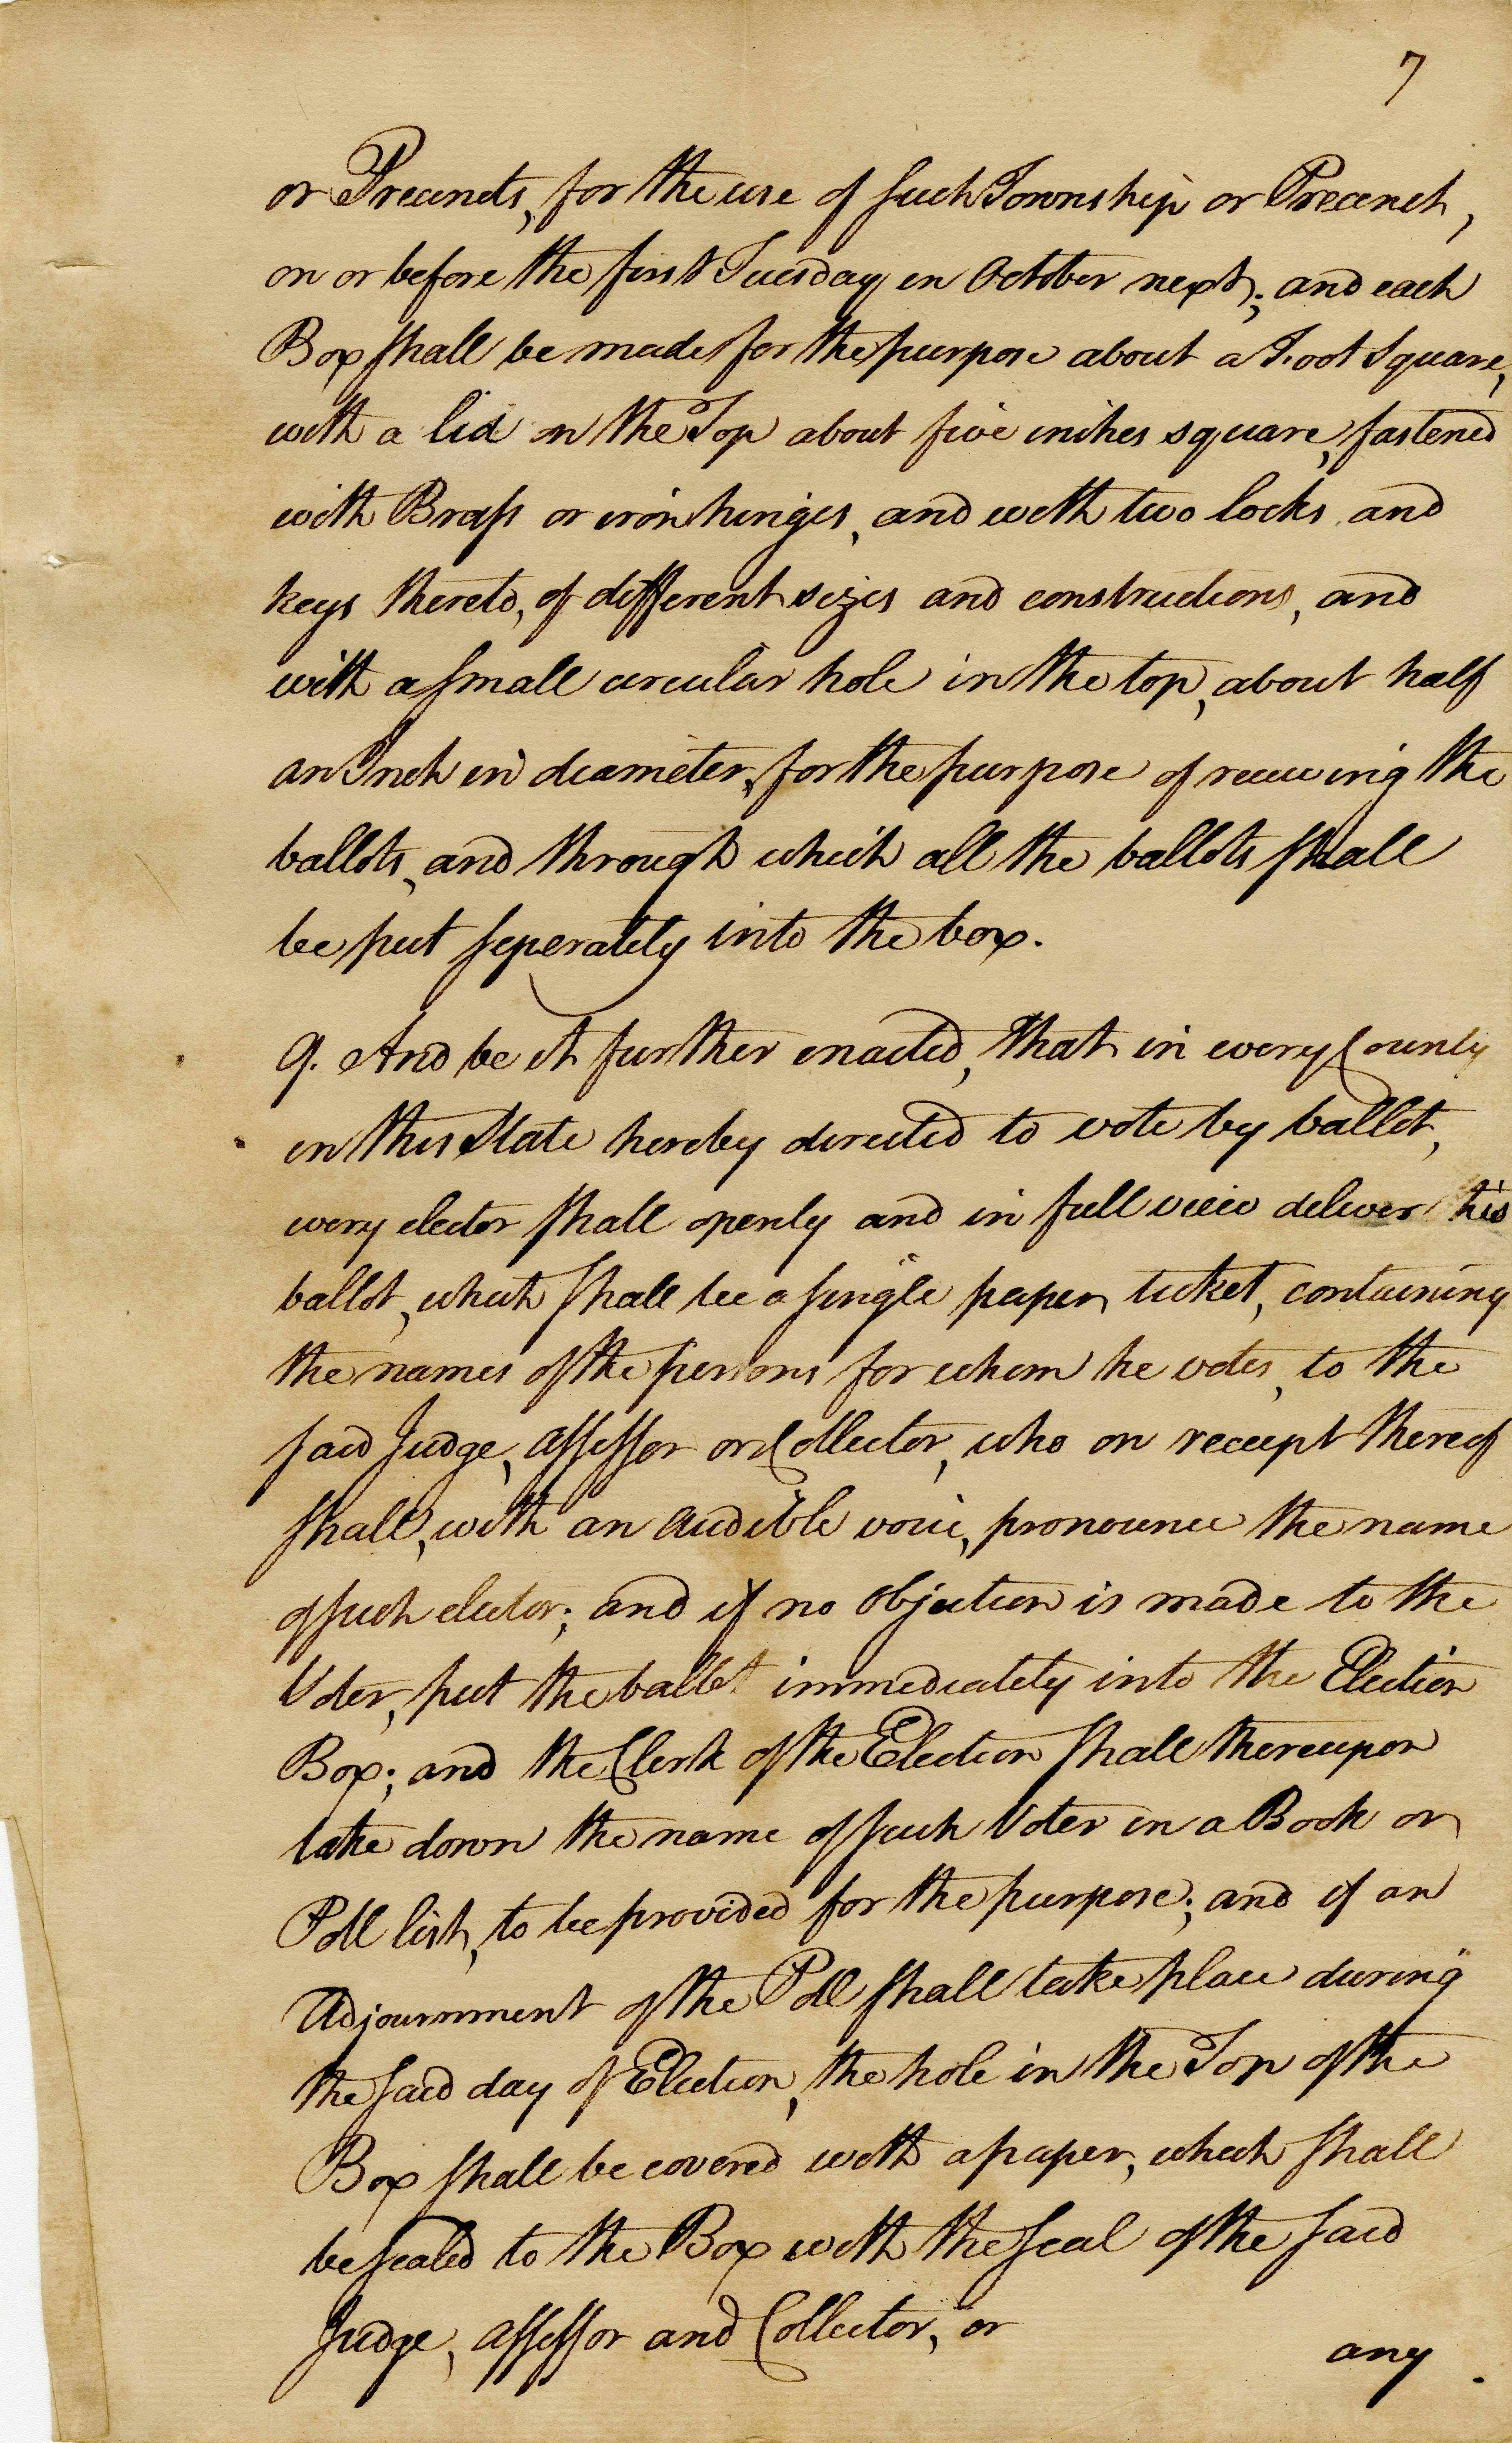 7
or Precincts, for the use of such Township or Precinct,
on or before the first Tuesday in October next; and each
Box shall be made for the purpose about a Foot Square,
with a lid on the Top about five inches square, fastened
with Brass or iron hinges, and with two locks and
keys thereto, of different sizes and constructions, and
with a small circular hole in the top, about half
an Inch in diameter, for the purpose of receiving the
ballots, and through which all the ballots shall
be put seperately into the box.
9. And be it further enacted, That in every County
in this State hereby directed to vote by ballot,
every elector shall openly and in full view deliver his
ballot, which shall be a single paper ticket, containing
the names of the persons for whom he votes, to the
said Judge, assessor or Collector, who on receipt thereof
shall, with an audible voice, pronounce the name
of such elector; and if no objection is made to the
Voter, put the ballot immediately into the Election
Box; and the Clerk of the Election shall thereupon
take down the name of such Voter in a Book or
Poll list, to be provided for the purpose; and if an
Adjournment of the Poll shall take place during
the said day of Election, the hole in the Top of the
Box shall be covered with a paper, which shall
be sealed to the Box with the seal of the said
Judge, assessor and Collector, or
any